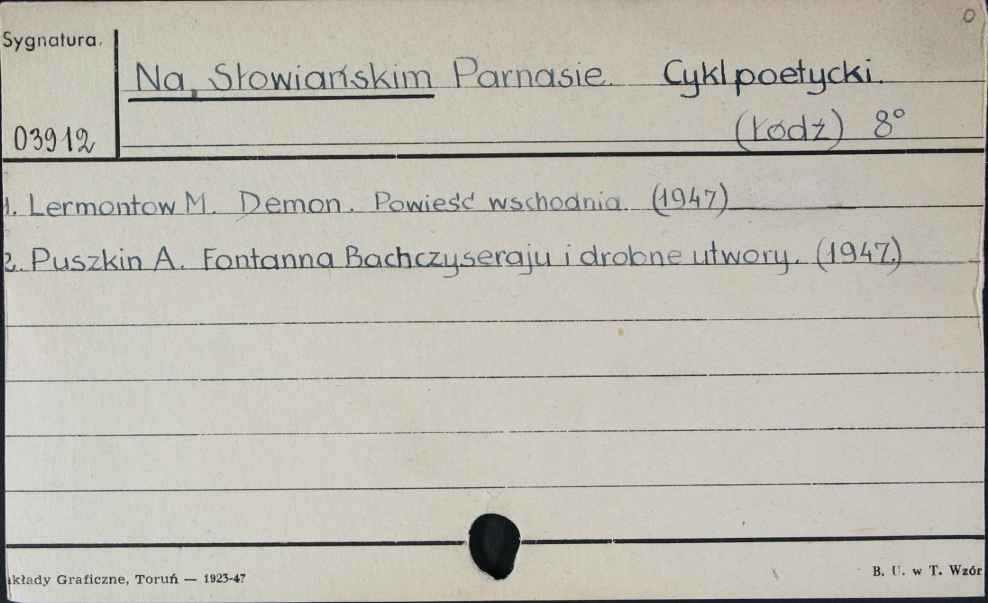 0
Sygnatura.
Na Słowiańskim Parnasie. Cykl poetycki.
03912
(Łódź) 8°
1. Lermontow M. Demon. Powieść wschodnia. (1947)
2. Puszkin A. Fontanna Bachczyseraju i drobne utwory. (1947.)
kłady Graficzne, Toruń — 1923-47
B. U. w T. Wzór